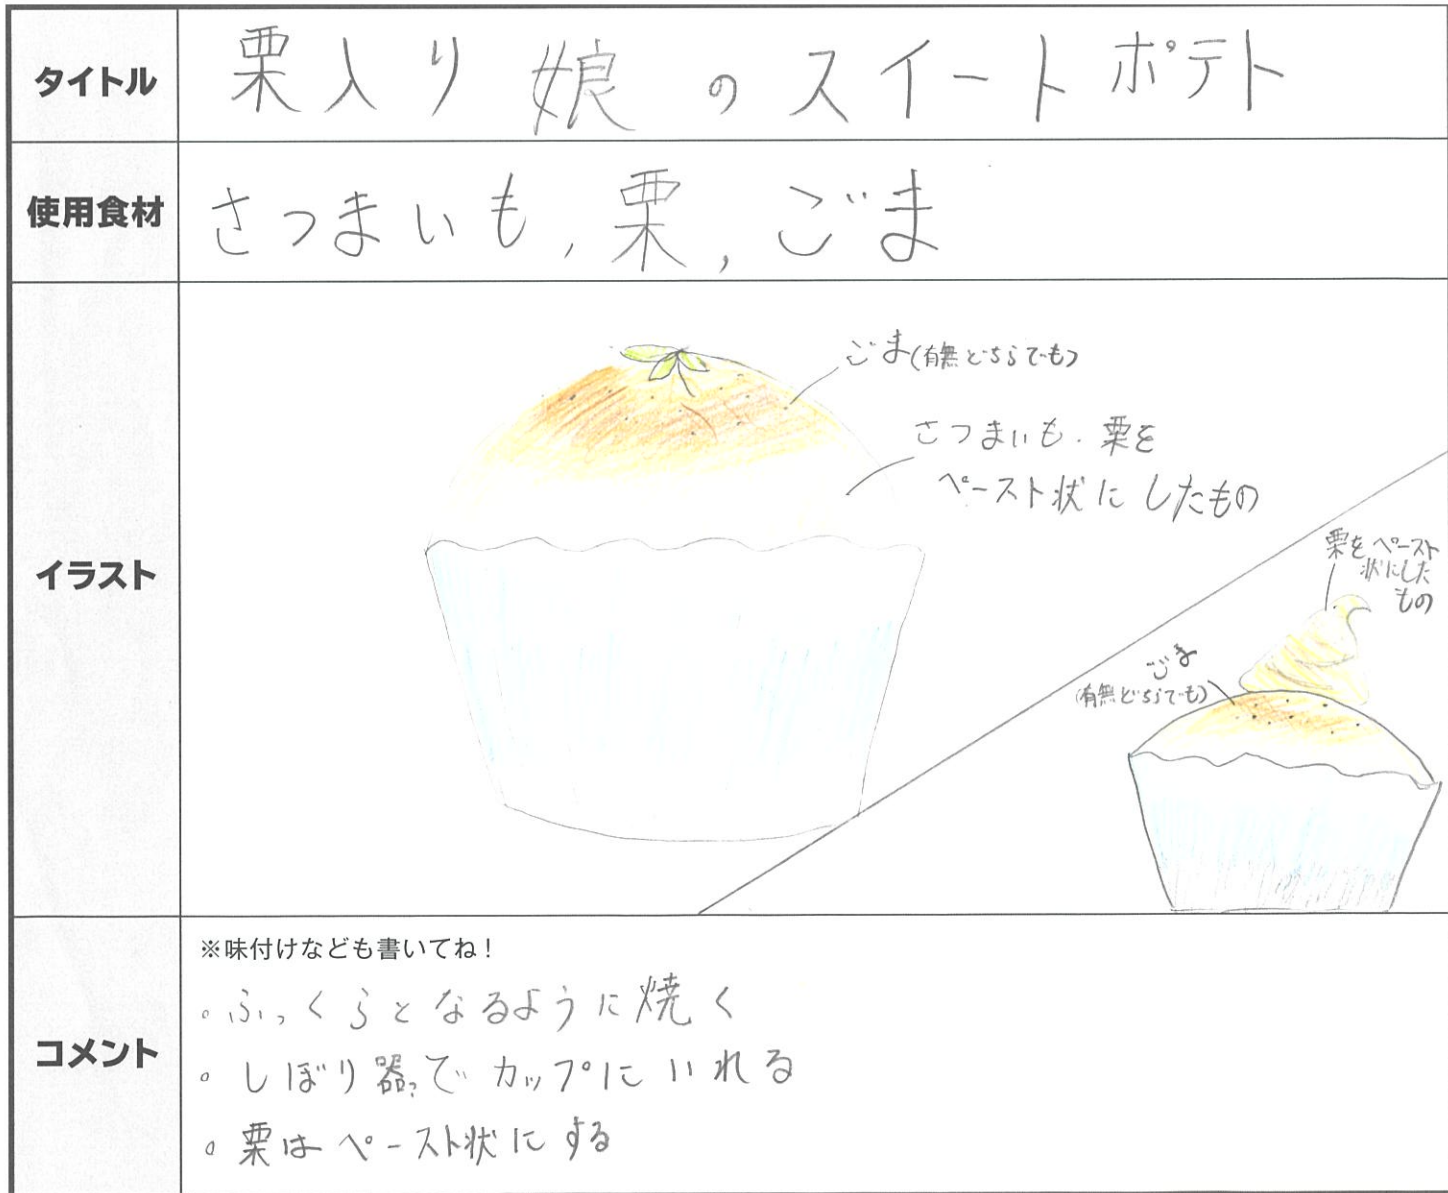 タイトル
栗入り娘のスイートポテト
使用食材
さつまいも,栗,ごま
イラスト
ごま(有無どちらでも)
さつまいも.栗を
ペースト状にしたもの
栗をペースト
状にした
もの
ごま
(有無どちらでも)
コメント
※味付けなども書いてね!
。ふっくらとなるように焼く
。しぼり器?でカップにいれる
。栗はペースト状にする